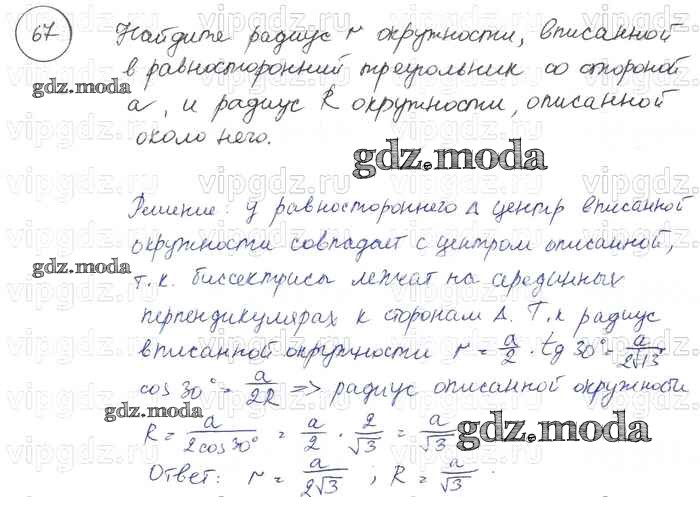 67
Найдите радиус r окружности, вписанной
в равносторонний треугольник со стороной
gdz.moda
a, и радиус R окружности, описанной
около него.
gdz.moda
vipgdz.ru
Решение: у равностороннего Δ центр вписанной
окружности совпадает с центром описанной,
gdz.moda
т.к. биссектрисы лежат на срединных
перпендикулярах к сторонам Δ. Т.к радиус
вписанной окружности r = a/2 · tg 30° = a/2√3
cos 30° = a/2R => радиус описанной окружности
gdz.moda
R = a/2cos30° = a/2 · 2/√3 = a/√3
gdz.moda
Ответ: r = a/2√3 ; R = a/√3.